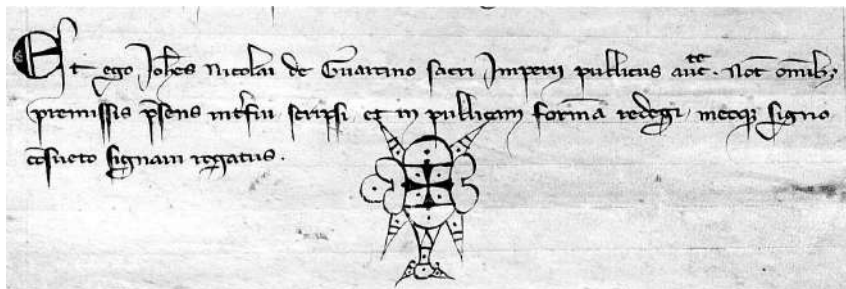 Et ego Joh̄es Nicolai de Guarcino sacri Imperii publicus auc̄te. Not̄ om̄ib;
premissis p̄sens int̄fui scripsi et in publicam form̄a redegi meoq; signo
cōsueto signavi rogatus.